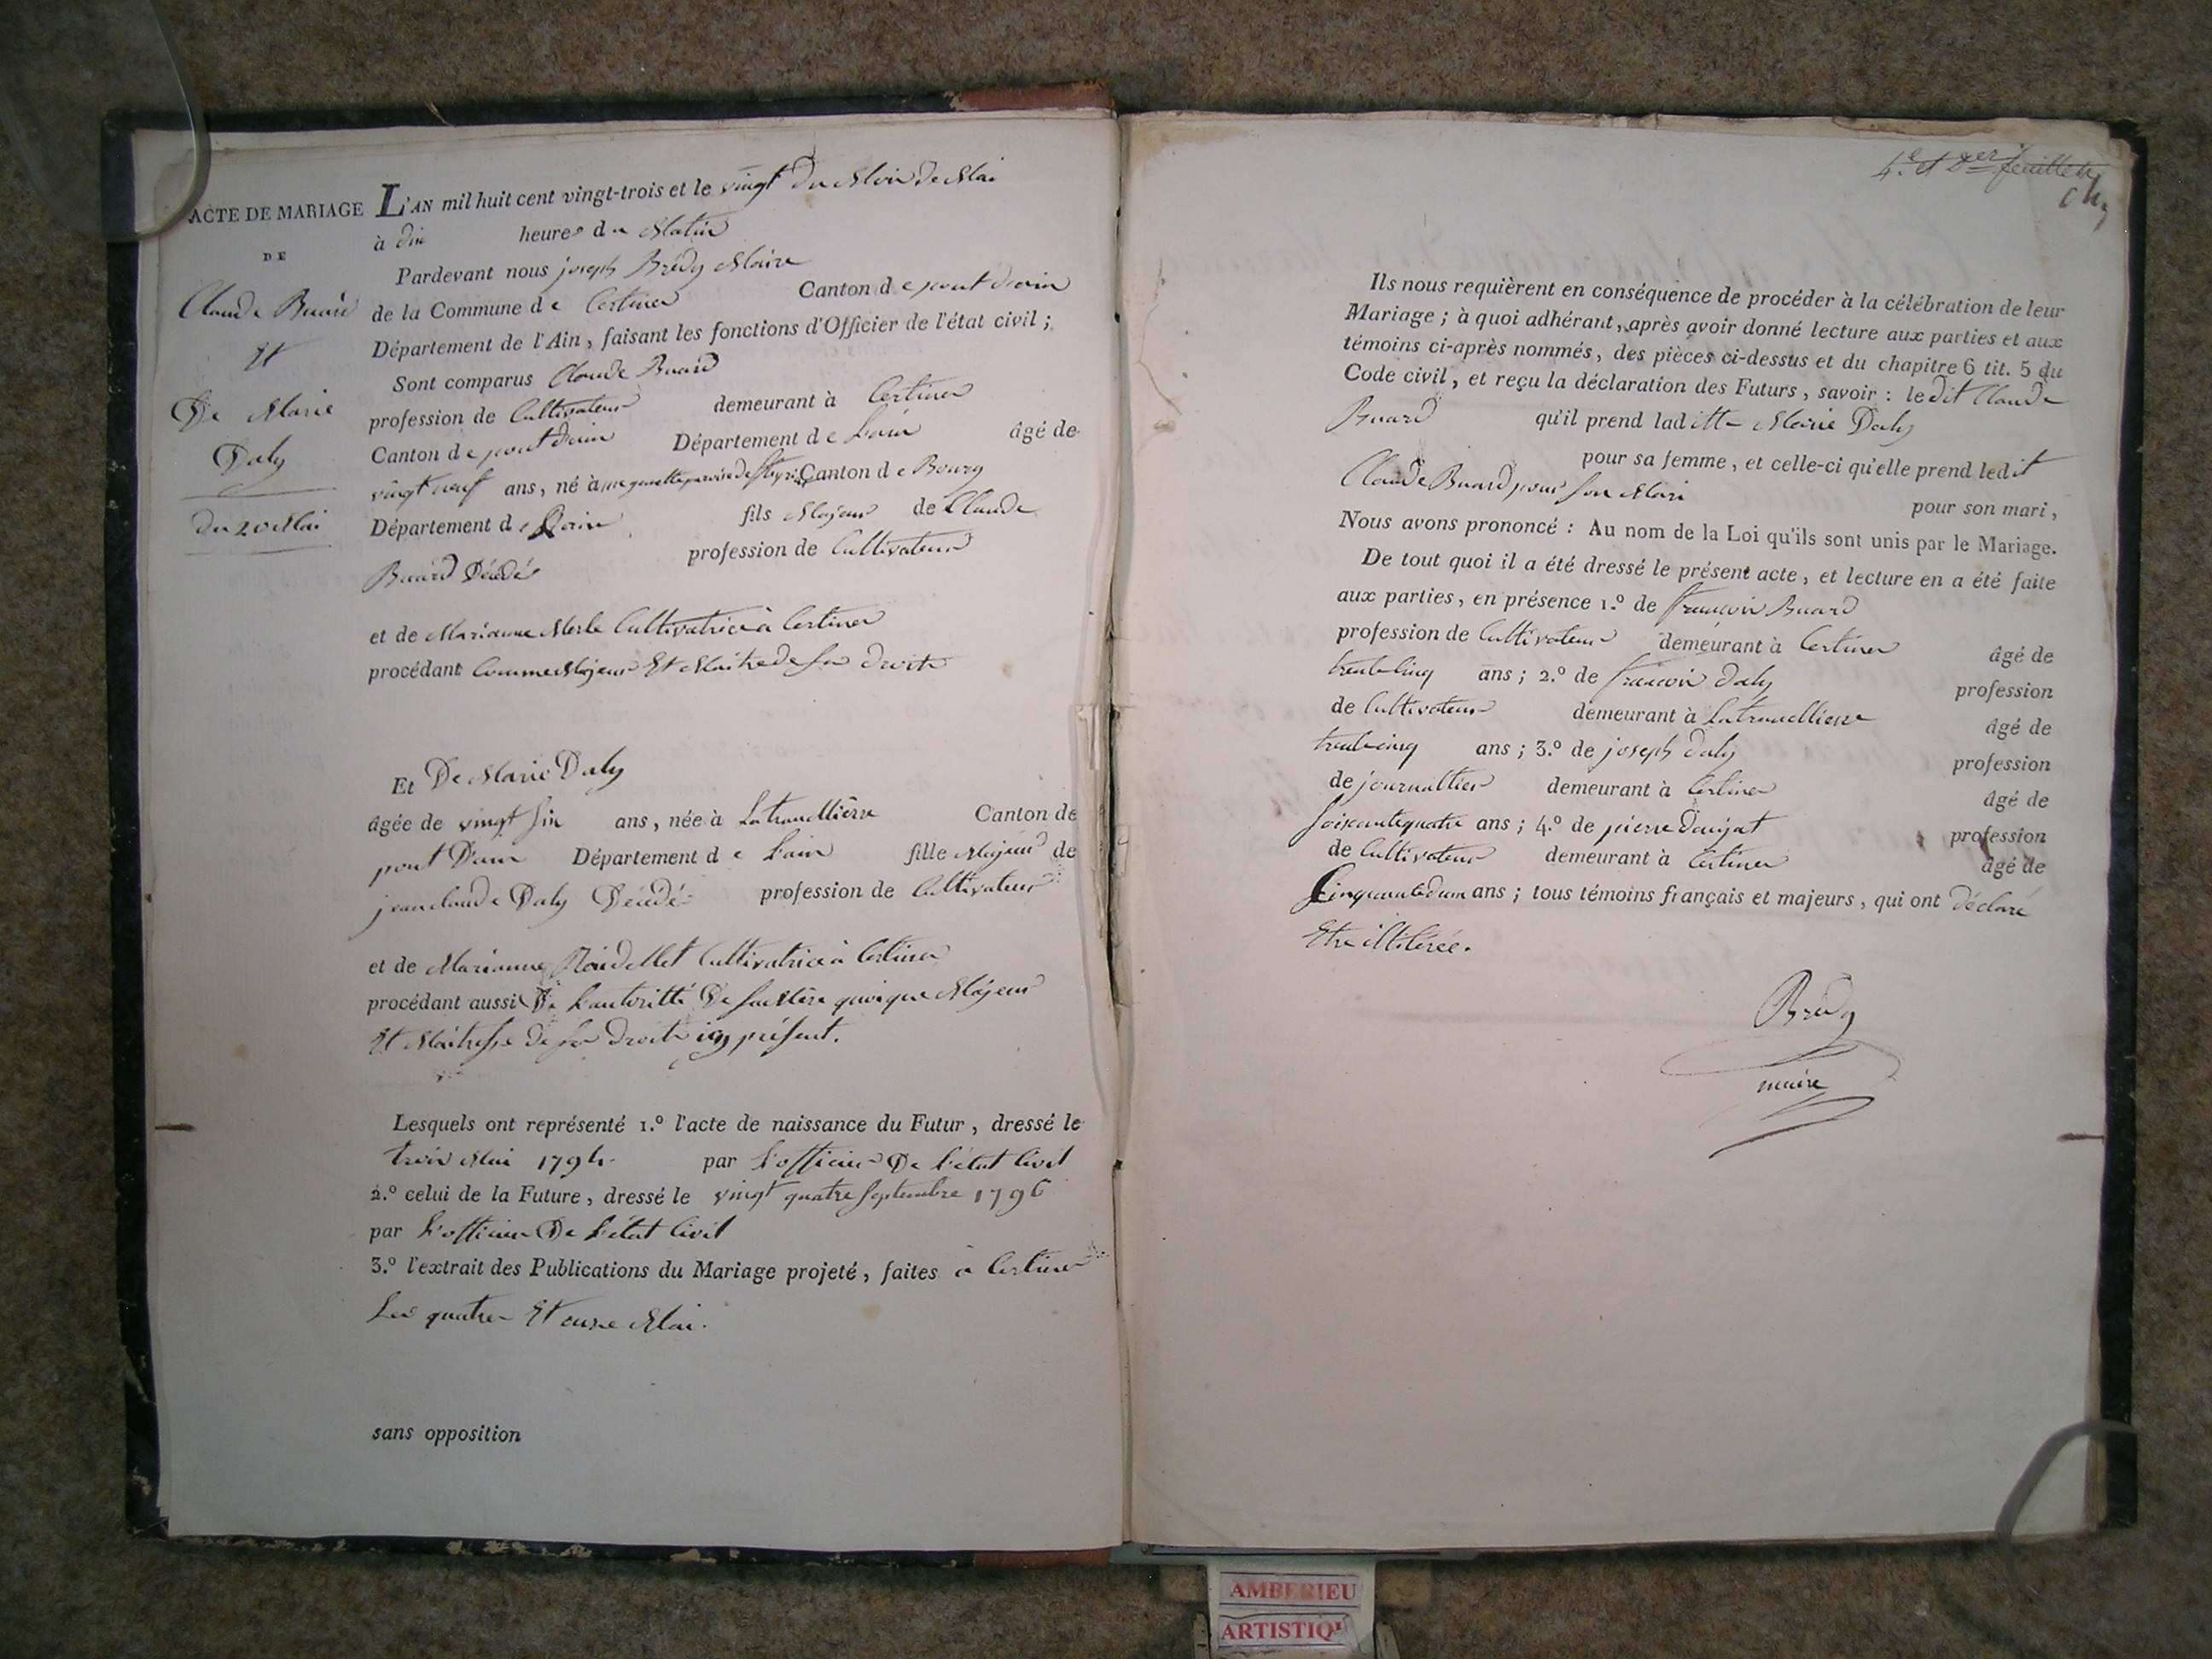 ACTE DE MARIAGE
DE
Claude Buard
Et
De Marie
Daly
du 20 Mai
L'AN mil huit cent vingt-trois et le vingt Du Mois De Mai
à dix heures du Matin
Pardevant nous joseph Brédy Maire
de la Commune de Certines Canton de pont d'ain
Département de l'Ain, faisant les fonctions d'Officier de l'état civil;
Sont comparus Claude Buard
profession de Cultivateur demeurant à Certines
Canton de pont d'ain Département de L'ain âgé de
vingt neuf ans, né à Canton de Bourg
Département de L'ain fils Majeur de Claude
Buard Décédé profession de Cultivateur
et de Marianne Merle Cultivatrice à Certines
procédant Comme Majeur Et Maitre de ses droits
Et De Marie Daly
âgée de vingt six ans, née à Latranclière Canton de
pont D'ain Département de L'ain fille Majeur de
jean claude Daly Décédé profession de Cultivateur
et de Marianne Cultivatrice à Certines
procédant aussi De L'autoritté De sa Mère quoique Majeur
Et Maitresse de ses droits icy présent.
Lesquels ont représenté 1.º l'acte de naissance du Futur, dressé le
trois Mai 1794 par L'officier De L'état Civil
2.º celui de la Future, dressé le vingt quatre Septembre 1796
par L'officier De L'état Civil
3.º l'extrait des Publications du Mariage projeté, faites à Certines
Les quatre Et onze Mai.
sans opposition
4.e et Der feuillet
Ils nous requièrent en conséquence de procéder à la célébration de leur
Mariage; à quoi adhérant, après avoir donné lecture aux parties et aux
témoins ci-après nommés, des pièces ci-dessus et du chapitre 6 tit. 5 du
Code civil, et reçu la déclaration des Futurs, savoir: ledit Claude
Buard qu'il prend laditte Marie Daly
pour sa femme, et celle-ci qu'elle prend ledit
Claude Buard pour son Mari pour son mari,
Nous avons prononcé: Au nom de la Loi qu'ils sont unis par le Mariage.
De tout quoi il a été dressé le présent acte, et lecture en a été faite
aux parties, en présence 1.º de françois Buard
profession de Cultivateur demeurant à Certines âgé de
trente cinq ans; 2.º de françois Daly profession
de Cultivateur demeurant à Latranclliere âgé de
trente cinq ans; 3.º de joseph Daly profession
de journallier demeurant à Certines âgé de
soixante quatre ans; 4.º de pierre profession
de Cultivateur demeurant à Certines âgé de
Cinquante deux ans; tous témoins français et majeurs, qui ont déclaré
Etre illitérée.
Brédy
maire
AMBERIEU
ARTISTIQ